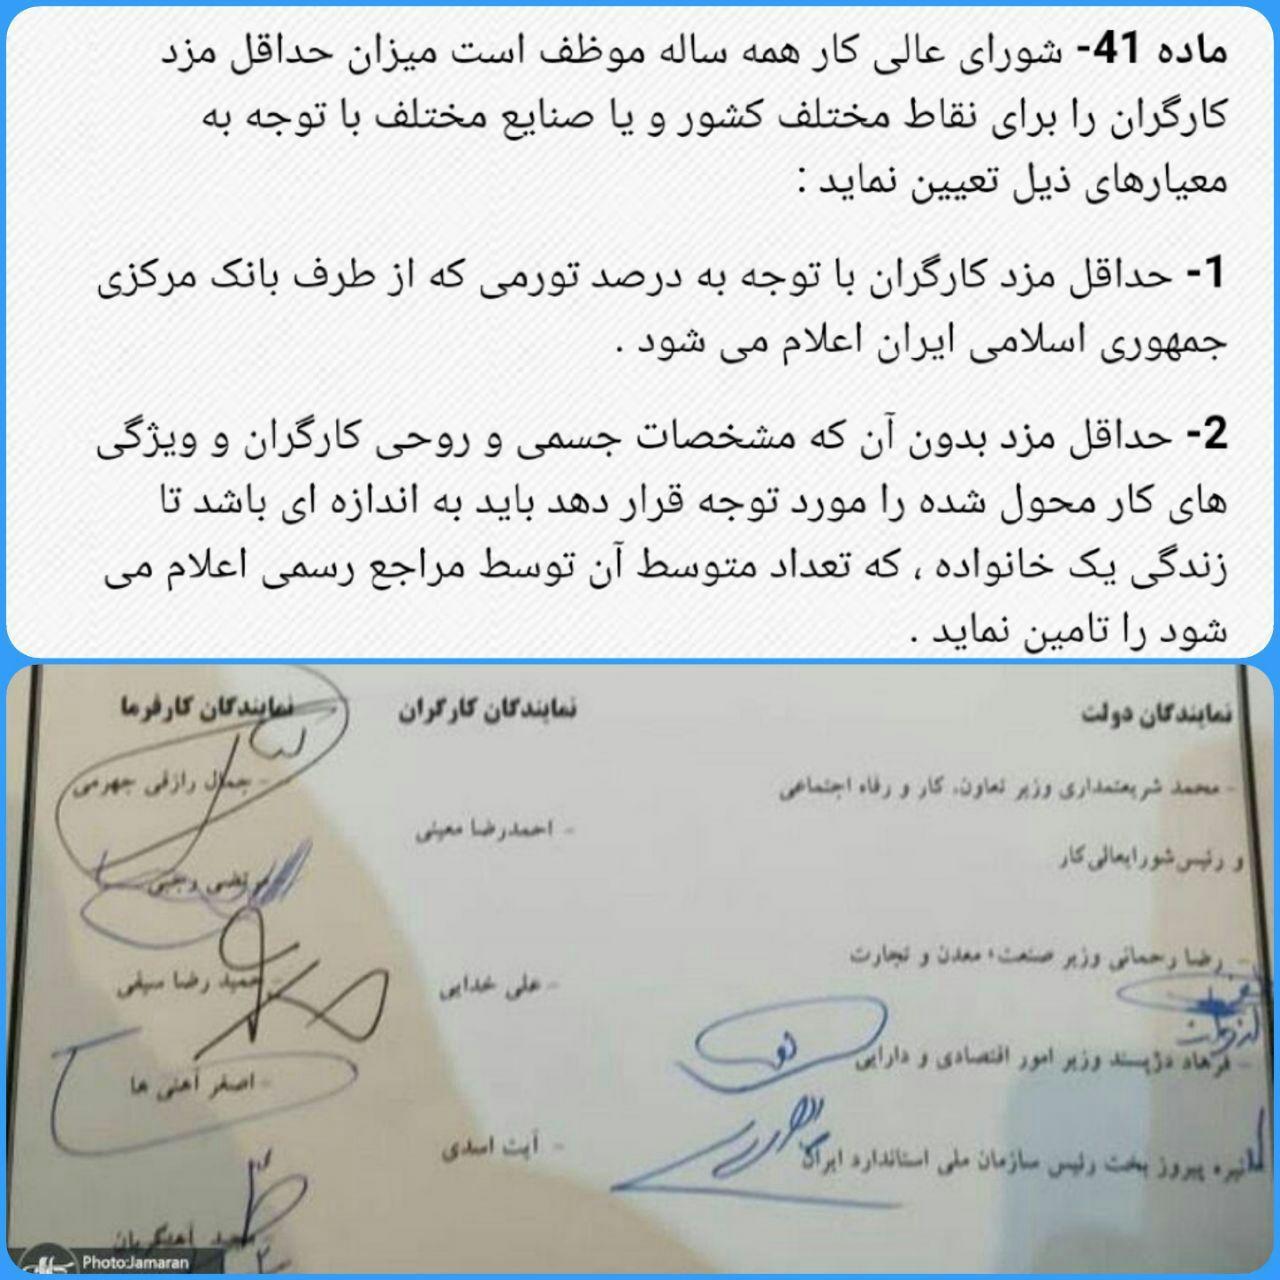 ماده 41- شورای عالی کار همه ساله موظف است میزان حداقل مزد
کارگران را برای نقاط مختلف کشور و یا صنایع مختلف با توجه به
معیارهای ذیل تعیین نماید :
1- حداقل مزد کارگران با توجه به درصد تورمی که از طرف بانک مرکزی
جمهوری اسلامی ایران اعلام می شود .
2- حداقل مزد بدون آن که مشخصات جسمی و روحی کارگران و ویژگی
های کار محول شده را مورد توجه قرار دهد باید به اندازه ای باشد تا
زندگی یک خانواده ، که تعداد متوسط آن توسط مراجع رسمی اعلام می
شود را تامین نماید .
نمایندگان دولت
- محمد شریعتمداری وزیر تعاون، کار و رفاه اجتماعی
و رئیس شورایعالی کار
- رضا رحمانی وزیر صنعت، معدن و تجارت
- فرهاد دژپسند وزیر امور اقتصادی و دارایی
نیره پیروز بخت رئیس سازمان ملی استاندارد ایران
نمایندگان کارگران
- احمدرضا معینی
- علی خدایی
- آیت اسدی
نمایندگان کارفرما
- جمال رازقی جهرمی
مرتضی
- حمید رضا سیفی
- اصغر آهنی ها
Photo:Jamaran